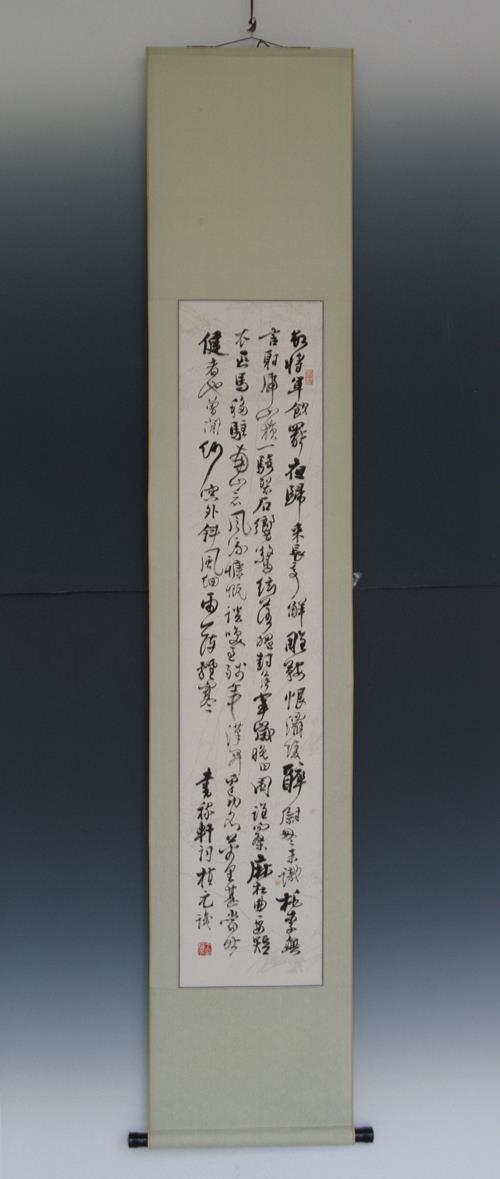 故將軍飲罷夜歸來長亭解雕鞍恨灞陵醉尉匆匆未識桃李無
言射虎山橫一騎裂石響驚絃落魄封侯事歲晚田園誰向桑麻杜曲要短
衣匹馬移駐南山看風流慷慨談笑過殘年漢開邊功名萬里甚當時
健者也曾閑紗窗外斜風細雨一陣輕寒
書稼軒詞 元識